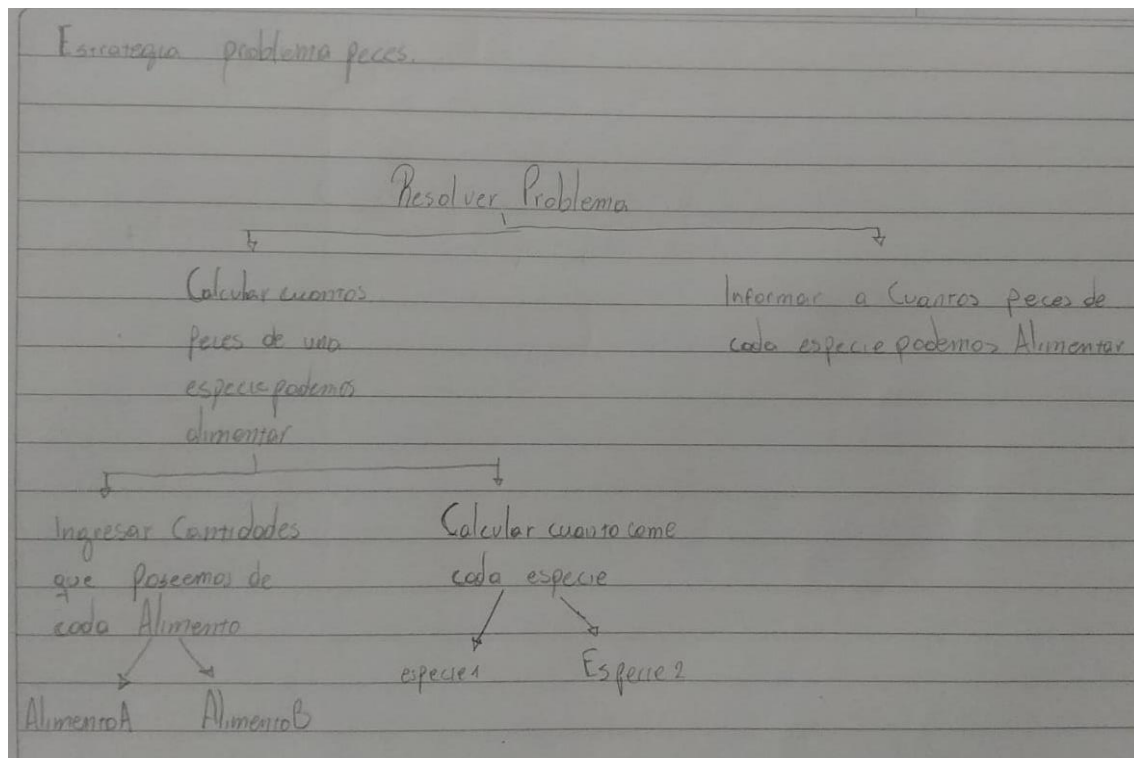 Estrategia problema peces.
Resolver Problema
Calcular cuantos
Peces de una
especie podemos
alimentar
Informar a Cuantos peces de
cada especie podemos Alimentar
Ingresar Cantidades
que Poseemos de
cada Alimento
Calcular cuanto come
cada especie
AlimentoA
AlimentoB
especie1
Especie 2